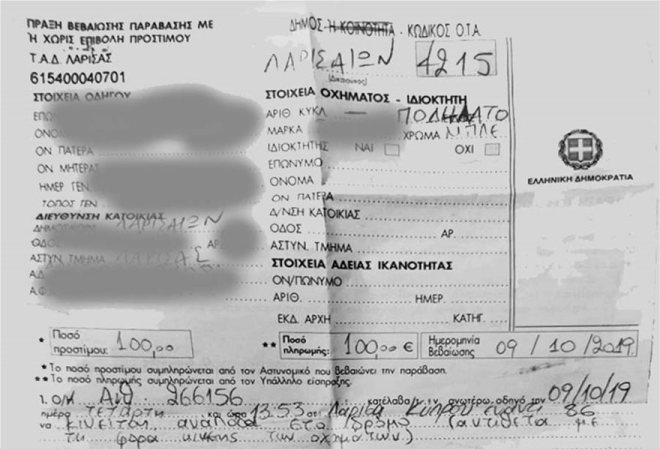 ΠΡΑΞΗ ΒΕΒΑΙΩΣΗΣ ΠΑΡΑΒΑΣΗΣ ΜΕ
Ή ΧΩΡΙΣ ΕΠΙΒΟΛΗ ΠΡΟΣΤΙΜΟΥ
Τ.Α.Δ. ΛΑΡΙΣΑΣ
615400040701
ΣΤΟΙΧΕΙΑ ΟΔΗΓΟΥ
ΕΠΩ
ΟΝΟ
ΟΝ ΠΑΤΕΡΑ
ΟΝ ΜΗΤΕΡΑΣ
ΗΜΕΡ ΓΕΝ
ΤΟΠΟΣ ΓΕΝ
ΔΙΕΥΘΥΝΣΗ ΚΑΤΟΙΚΙΑΣ
ΛΑΡΙΣΑΙΩΝ
ΟΔΟΣ ΑΡ.
ΑΣΤΥΝ. ΤΜΗΜΑ ΛΑΡΙΣΑΣ
Α.Δ
Α.Φ
ΔΗΜΟΣ Ή ΚΟΙΝΟΤΗΤΑ - ΚΩΔΙΚΟΣ Ο.Τ.Α.
ΛΑΡΙΣΑΙΩΝ 4215
(Δικαιούχος)
ΣΤΟΙΧΕΙΑ ΟΧΗΜΑΤΟΣ - ΙΔΙΟΚΤΗΤΗ
ΑΡΙΘ ΚΥΚΛ ΠΟΔΗΛΑΤΟ
ΜΑΡΚΑ ΧΡΩΜΑ ΜΠΛΕ
ΙΔΙΟΚΤΗΤΗΣ ΝΑΙ ΟΧΙ
ΕΠΩΝΥΜΟ
ΟΝΟΜΑ
ΟΝ ΠΑΤΕΡΑ
Δ/ΝΣΗ ΚΑΤΟΙΚΙΑΣ
ΟΔΟΣ ΑΡ.
ΑΣΤΥΝ. ΤΜΗΜΑ
ΣΤΟΙΧΕΙΑ ΑΔΕΙΑΣ ΙΚΑΝΟΤΗΤΑΣ
ΟΝ/ΠΩΝΥΜΟ
ΑΡΙΘ. ΗΜΕΡ.
ΕΚΔ. ΑΡΧΗ ΚΑΤΗΓ.
ΕΛΛΗΝΙΚΗ ΔΗΜΟΚΡΑΤΙΑ
* Ποσό προστίμου: 100,00
** Ποσό πληρωμής: 100,00 €
Ημερομηνία Βεβαίωσης 09 / 10 / 2019
* Το ποσό προστίμου συμπληρώνεται από τον Αστυνομικό που βεβαιώνει την παράβαση.
** Το ποσό πληρωμής συμπληρώνεται από τον Υπάλληλο είσπραξης.
1. Ο/Η 266156 κατέλαβα/ ανωτέρω οδηγό την 09/10/19
ημέρα ΤΕΤΑΡΤΗ και ώρα 13:53 στ Λάρισα Κύπρου έναντι 86
να κινείται ανάποδα στο δρόμο (αντίθετα με
τη φορά κίνησης των οχημάτων)